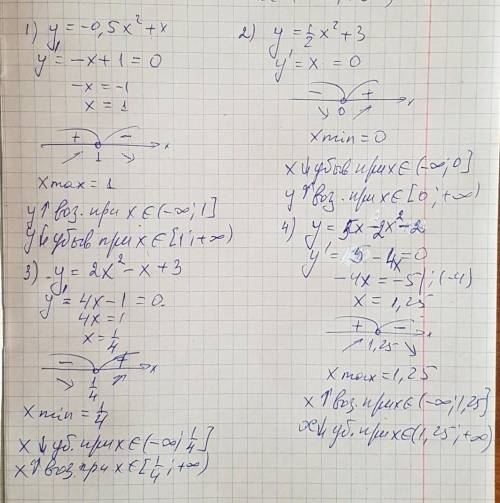 1) y = -0,5x² + x
y' = -x + 1 = 0
-x = -1
x = 1
+ -
1 x
x max = 1
y ↑ воз. при x ∈ (-∞; 1]
y ↓ убыв при x ∈ [1; +∞)
3) y = 2x² - x + 3
y' = 4x - 1 = 0.
4x = 1
x = 1/4
- +
1/4 x
x min = 1/4
x ↓ уб. при x ∈ (-∞; 1/4]
x ↑ воз. при x ∈ [1/4; +∞)
2) y = 1/2 x² + 3
y' = x = 0
- +
0 x
x min = 0
x ↓ убыв при x ∈ (-∞; 0]
y ↑ воз. при x ∈ [0; +∞)
4) y = 5x - 2x² - 2
y' = 5 - 4x = 0
-4x = -5 | : (-4)
x = 1,25
+ -
1,25 x
x max = 1,25
x ↑ воз. при x ∈ (-∞; 1,25]
x ↓ уб. при x ∈ (1,25; +∞)